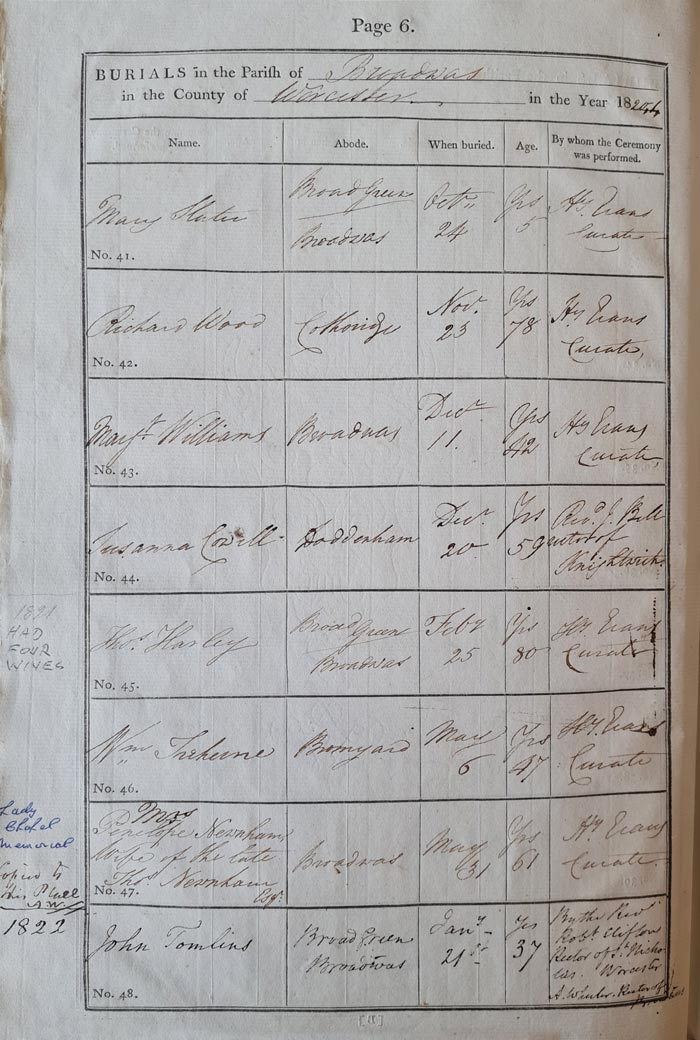 Page 6.
BURIALS in the Parish of Broadwas
in the County of Worcester in the Year 1820
Name. Abode. When buried. Age. By whom the Ceremony was performed.
Mary Slater
No. 41.
Broad Green
Broadwas
Octr
24
Yrs
5
Hy Evans
Curate
Richard Wood
No. 42.
Cotheridge
Novr
23
Yrs
78
Hy Evans
Curate
Margt Williams
No. 43.
Broadwas
Decr
11.
Yrs
42
Hy Evans
Curate
Susanna Cowell
No. 44.
Doddenham
Decr
20
Yrs
59
Revd J. Bell
Knightwick
1821
HAD
FOUR
WIVES
Thos Harley
No. 45.
Broad Green
Broadwas
Feby
25
Yrs
80
Hy Evans
Curate
Wm Trehune
No. 46.
Bromyard
May
6
Yrs
47
Hy Evans
Curate
Lady
Chapel
Memorial
Mrs
Penelope Newnham
Wife of the late
Thos Newnham
Esqr
No. 47.
Broadwas
May
31
Yrs
61
Hy Evans
Curate
1822
John Tomlins
No. 48.
Broad Green
Broadwas
Jany
21st
Yrs
37
By the Revd
Robt Clifton
Rector of St Nicho
las. Worcester